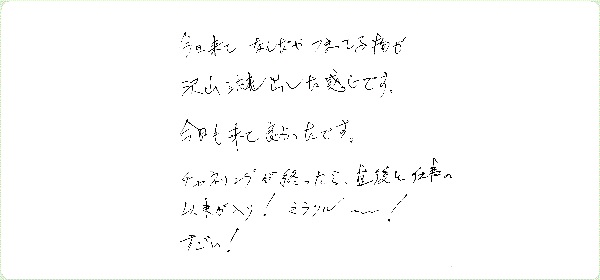 今日来て なんだか つまってる物が
沢山流れ出した感じです。
今日も来て良かったです。
チャネリングが終ったら、直後に仕事の
以来が入り! ミラクル〜!
すごい!